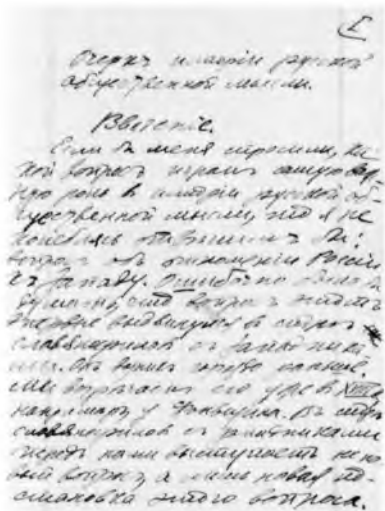 I
Очеркъ исторіи русской
общественной мысли.
Введеніе.
Если бъ меня спросили, ка-
кой вопросъ игралъ самую важ-
ную роль в исторіи русской об-
щественной мысли, то я не
колеблясь отвѣтилъ бы:
вопросъ объ отношеніи Россіи
къ Западу. Ошибочно было
думать, что вопросъ этотъ
впервые выдвинулся в спорѣ
славянофиловъ съ западника-
ми. Онъ возникъ гораздо раньше.
Мы встрѣчаемъ его уже въ XVIII в.
напримѣръ у Фонвизина. Въ спорѣ
славянофиловъ съ западниками
передъ нами выступаетъ не но-
вый вопросъ, а лишь новая по-
становка этого вопроса.